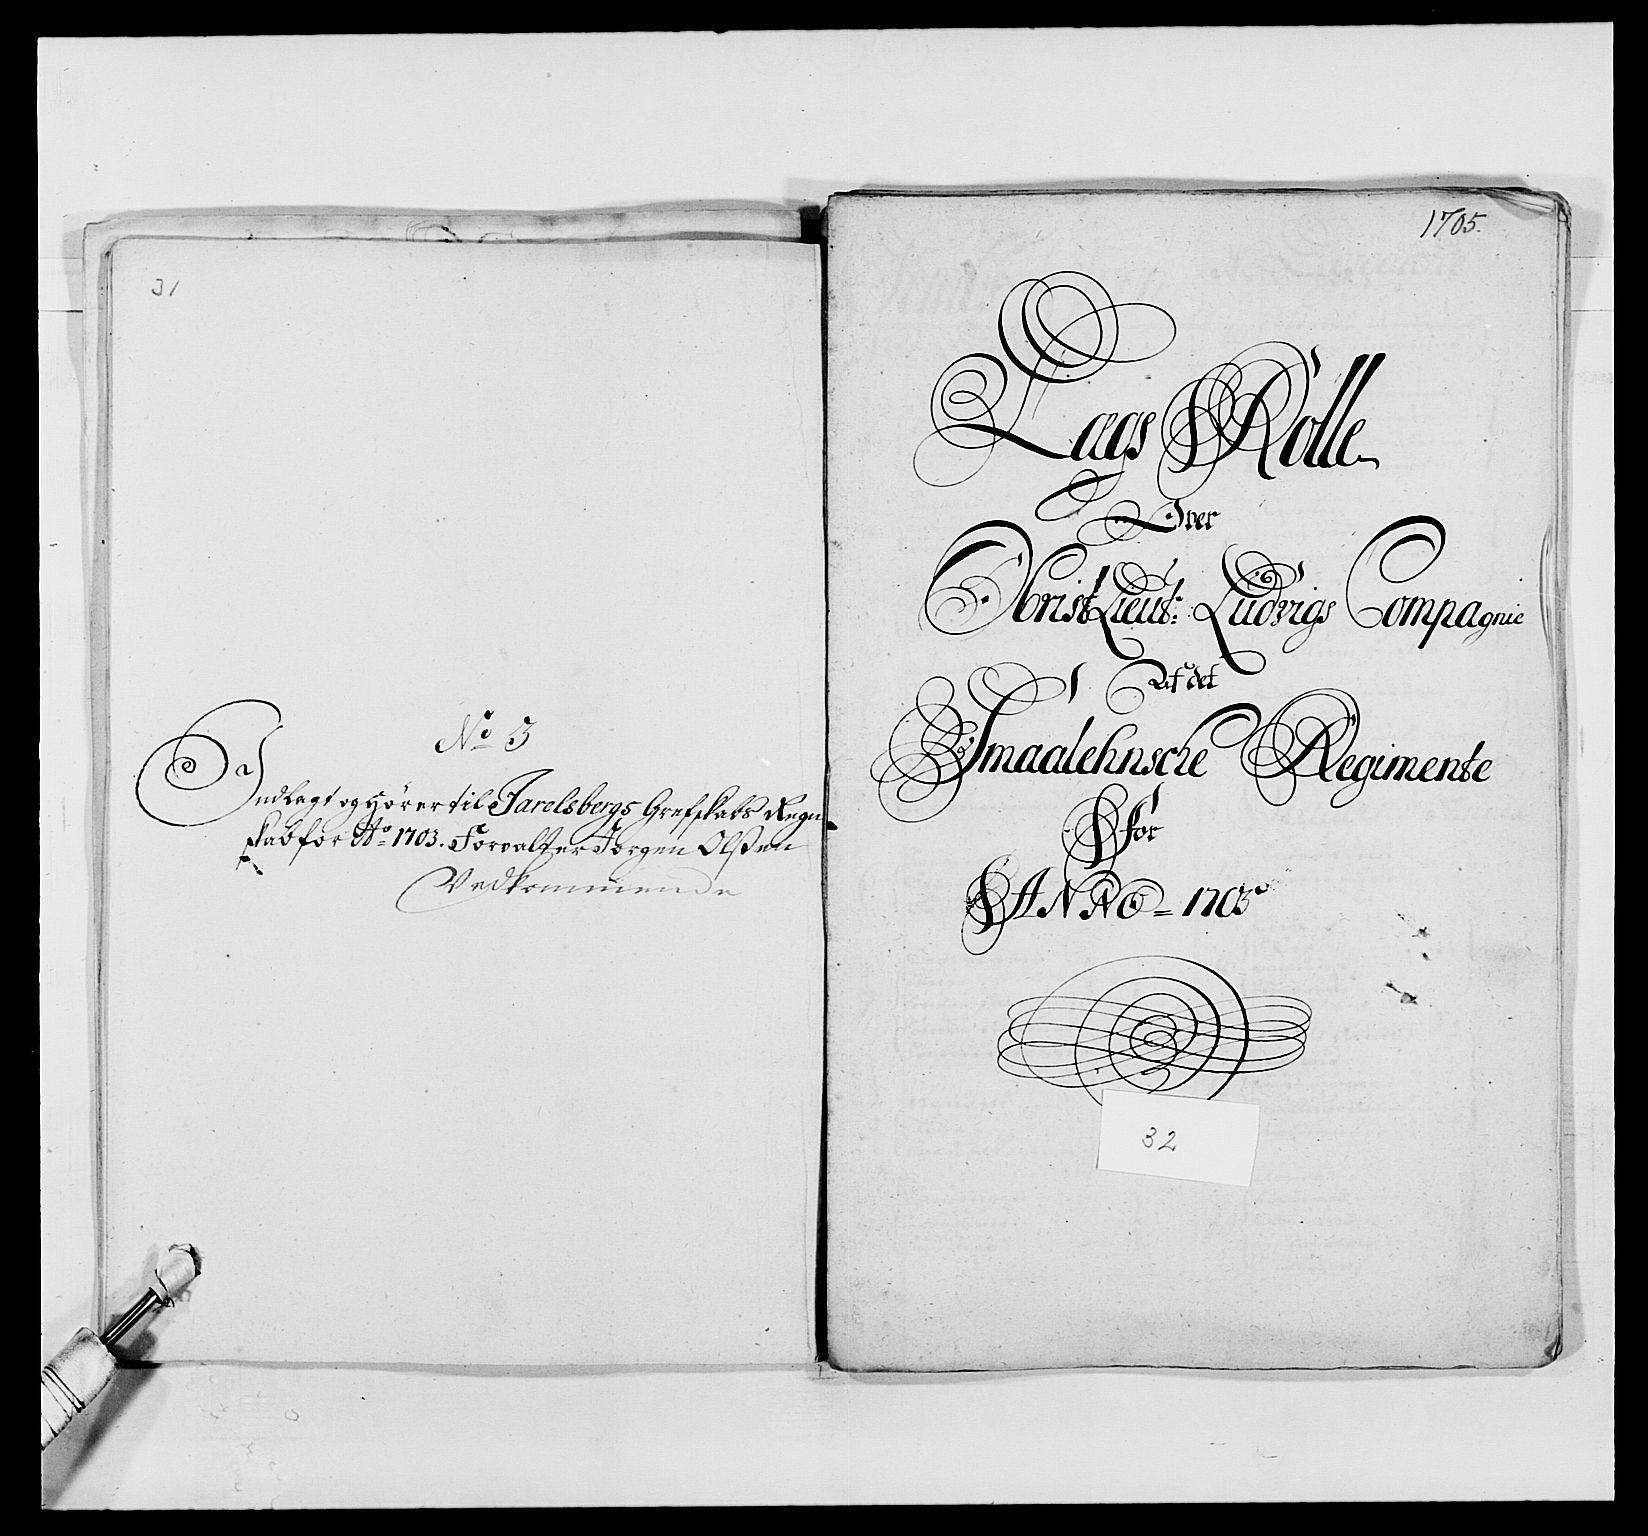 31
No 3
Indlagt og Hører til Jarelsbergs Grefskabs Regn
skab for Ao 1703. Forvalter Jørgen Olsen
Vedkommende
1705.
Lægs Rolle
Over
Obrist Lieut: Ludvigs Compagnie
Af det
Smaalehnsche Regimente
For
ANNO = 1703
32